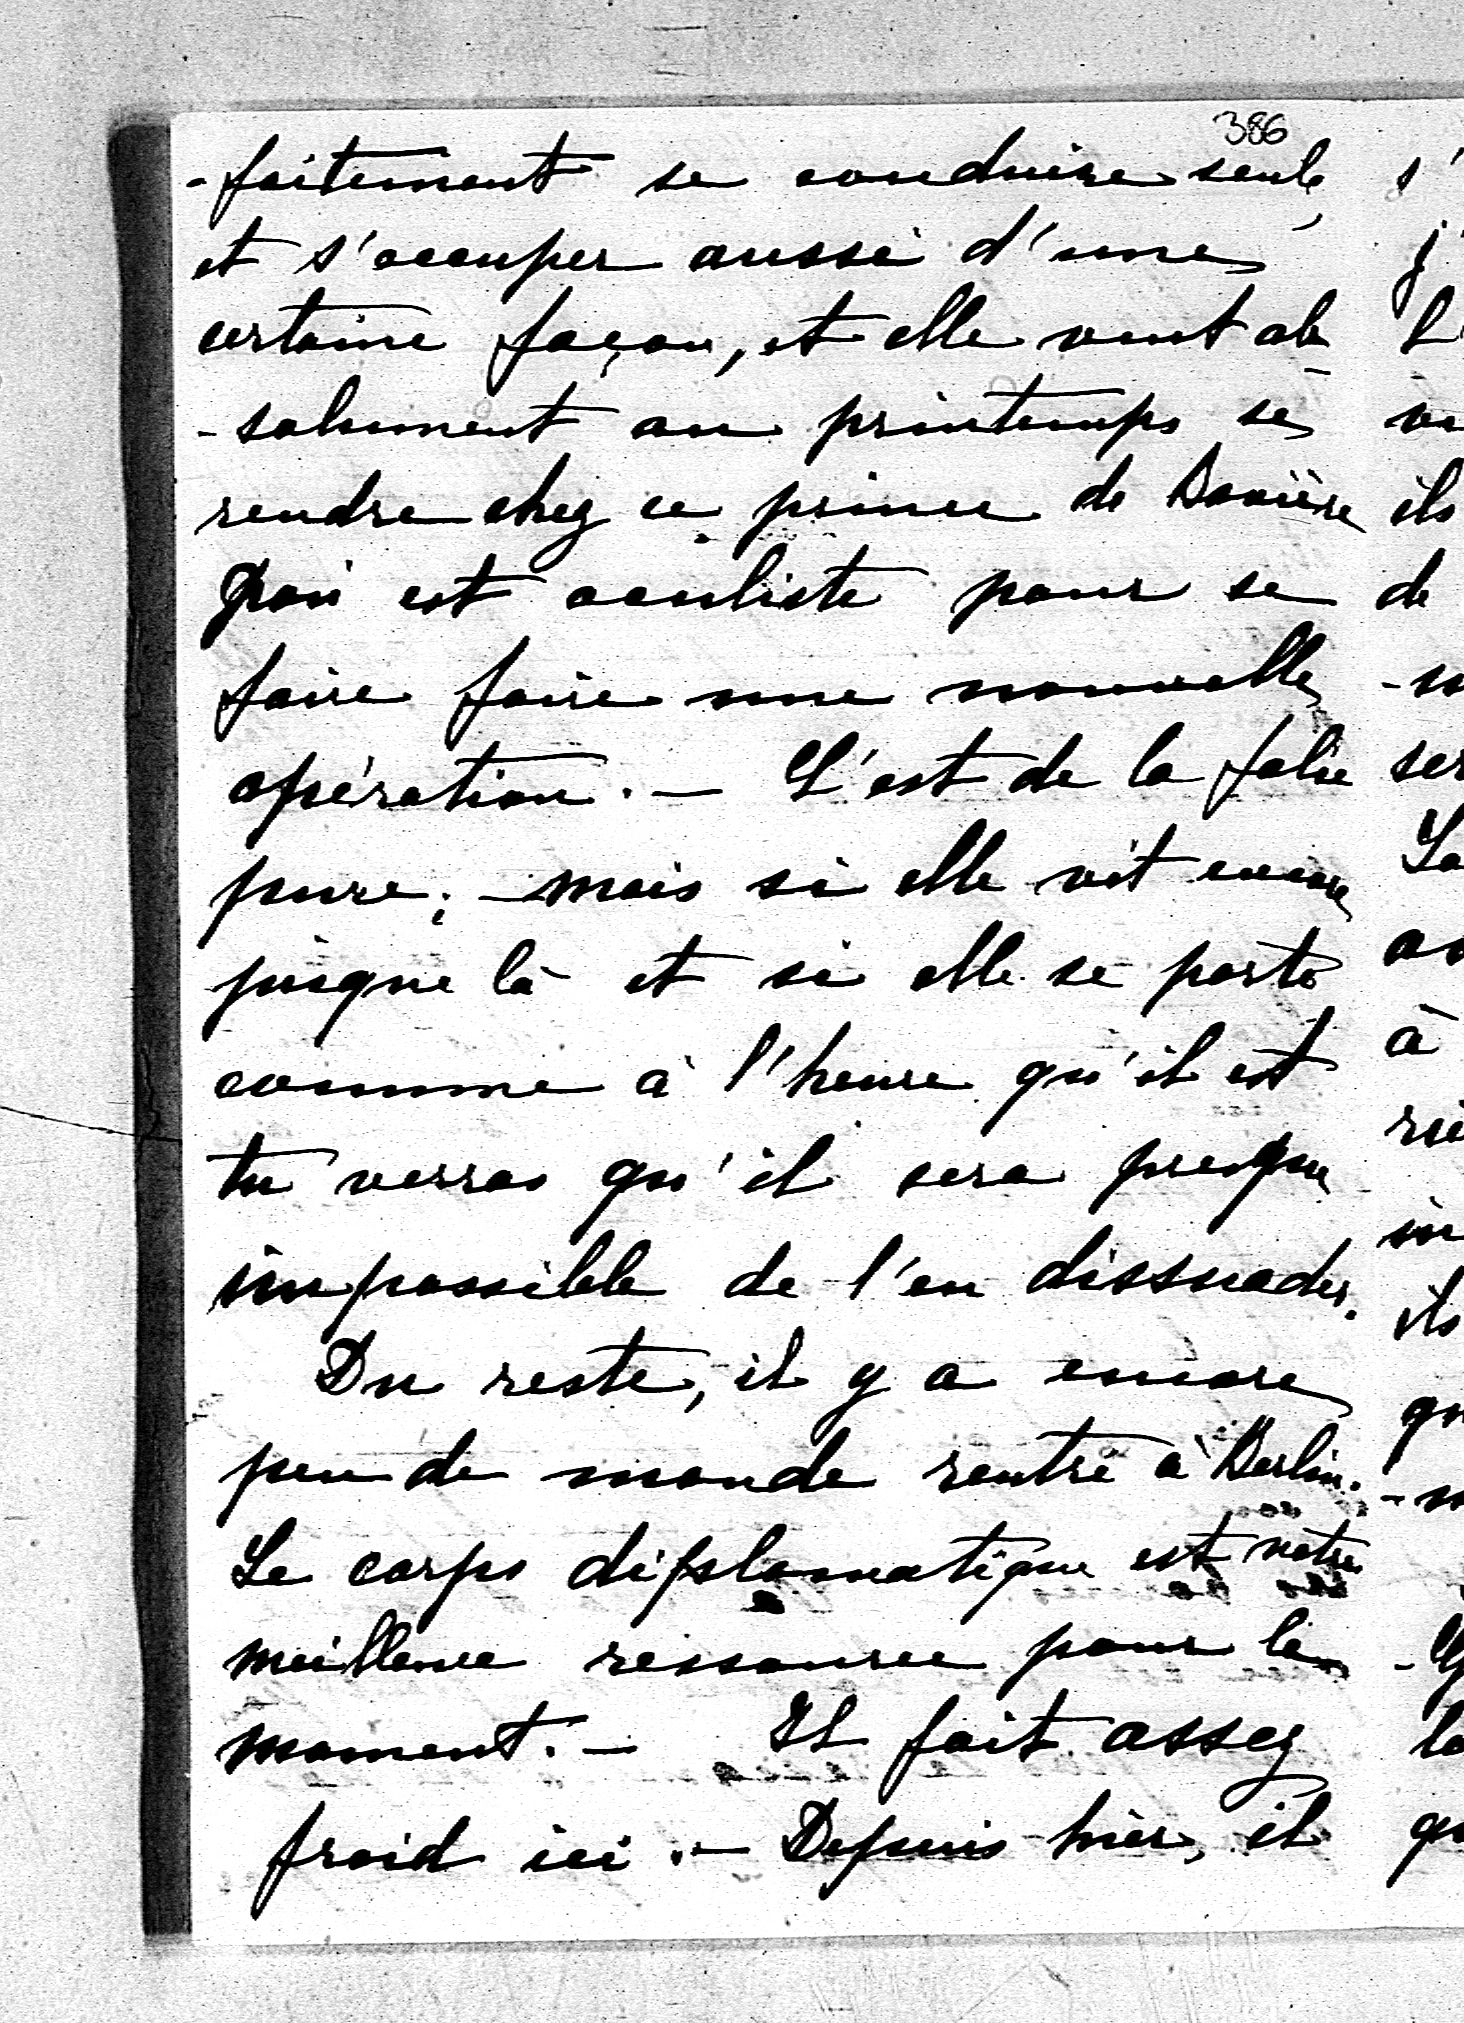 386
-faitement se conduire seule,
et s'occuper aussi d'une
certaine façon, et elle veut ab
-solument au printemps se
rendre chez ce prince de Bavière
qui est oculiste pour se
faire faire une nouvelle
opération. — C'est de la folie
pure; — mais si elle vit encore
jusque là et si elle se porte
comme à l'heure qu'il est
tu verras qu'il sera presque
impossible de l'en dissuader.
Du reste, il y a encore
peu de monde rentré à Berlin.
Le corps diplomatique est notre
meilleure ressource pour le
moment. — Il fait assez
froid ici. — Depuis hier, il